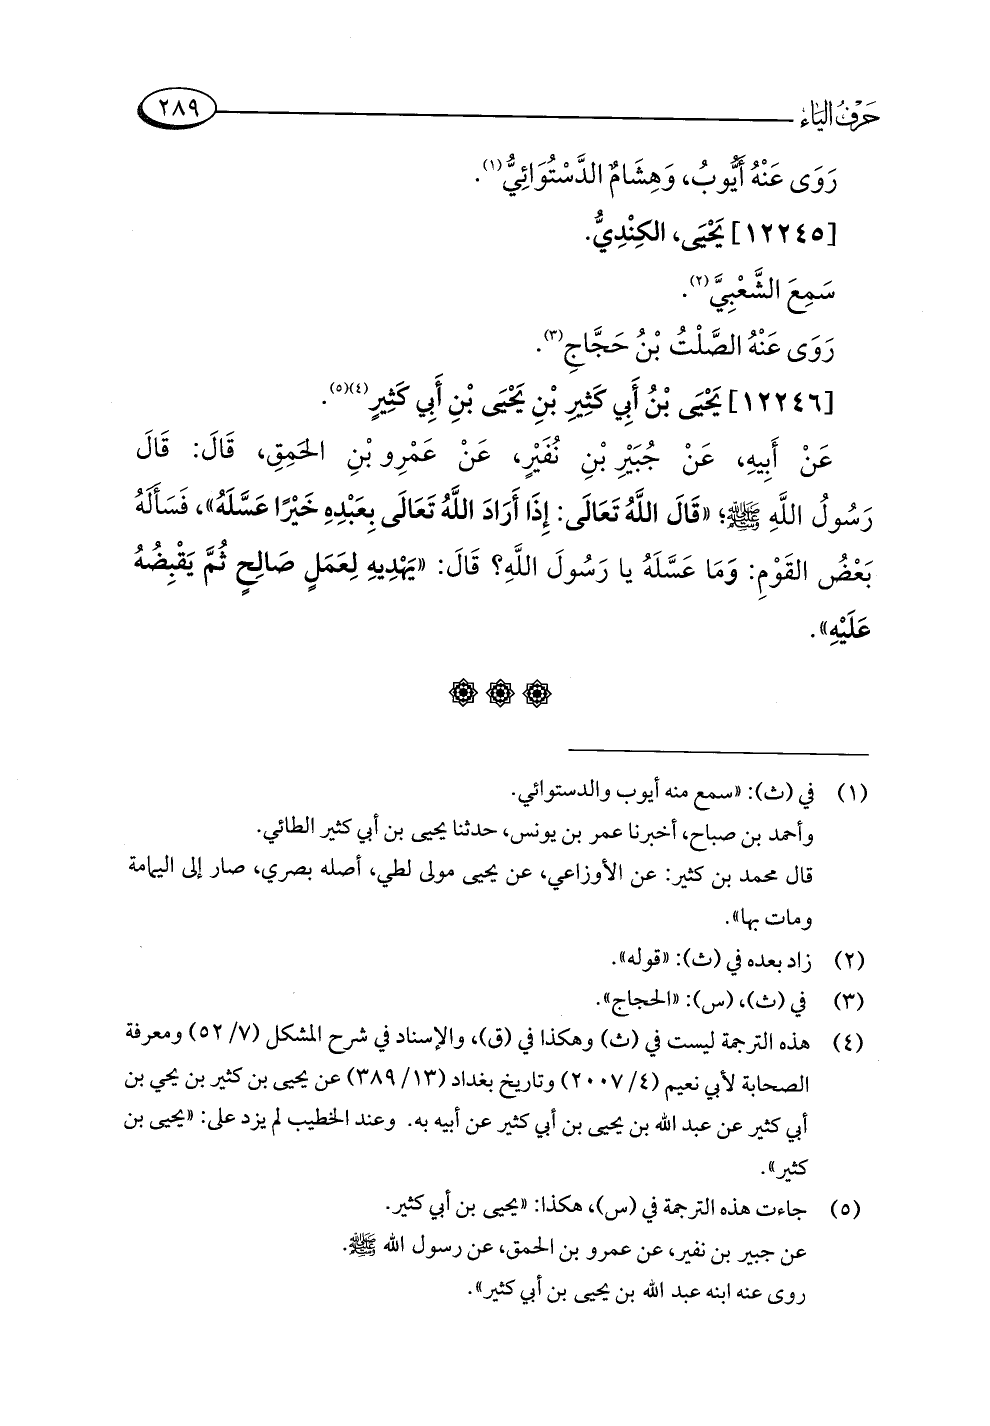 حَرْفُ اليَاءِ
٢٨٩
رَوَى عَنْهُ أَيُّوبُ، وَهِشَامٌ الدَّسْتُوَائِيُّ(١).
[١٢٢٤٥] يَحْيَى، الكِنْدِيُّ.
سَمِعَ الشَّعْبِيَّ(٢).
رَوَى عَنْهُ الصَّلْتُ بْنُ حَجَّاجٍ(٣).
[١٢٢٤٦] يَحْيَى بْنُ أَبِي كَثِيرِ بْنِ يَحْيَى بْنِ أَبِي كَثِيرٍ(٤)(٥).
عَنْ أَبِيهِ، عَنْ جُبَيْرِ بْنِ نُفَيْرٍ، عَنْ عَمْرِو بْنِ الحَمِقِ، قَالَ: قَالَ
رَسُولُ اللَّهِ ﷺ؛ «قَالَ اللَّهُ تَعَالَى: إِذَا أَرَادَ اللَّهُ تَعَالَى بِعَبْدِهِ خَيْرًا عَسَّلَهُ»، فَسَأَلَهُ
بَعْضُ القَوْمِ: وَمَا عَسَّلَهُ يا رَسُولَ اللَّهِ؟ قَالَ: «يَهْدِيهِ لِعَمَلٍ صَالِحٍ ثُمَّ يَقْبِضُهُ
عَلَيْهِ».
(١) في (ث): «سمع منه أيوب والدستوائي.
وأحمد بن صباح، أخبرنا عمر بن يونس، حدثنا يحيى بن أبي كثير الطائي.
قال محمد بن كثير: عن الأوزاعي، عن يحيى مولى لطي، أصله بصري، صار إلى اليمامة
ومات بها».
(٢) زاد بعده في (ث): «قوله».
(٣) في (ث)، (س): «الحجاج».
(٤) هذه الترجمة ليست في (ث) وهكذا في (ق)، والإسناد في شرح المشكل (٧/ ٥٢) ومعرفة
الصحابة لأبي نعيم (٤/ ٢٠٠٧) وتاريخ بغداد (١٣/ ٣٨٩) عن يحيى بن كثير بن يحي بن
أبي كثير عن عبد الله بن يحيى بن أبي كثير عن أبيه به. وعند الخطيب لم يزد على: «يحيى بن
كثير».
(٥) جاءت هذه الترجمة في (س)، هكذا: «يحيى بن أبي كثير.
عن جبير بن نفير، عن عمرو بن الحمق، عن رسول الله ﷺ.
روى عنه ابنه عبد الله بن يحيى بن أبي كثير».